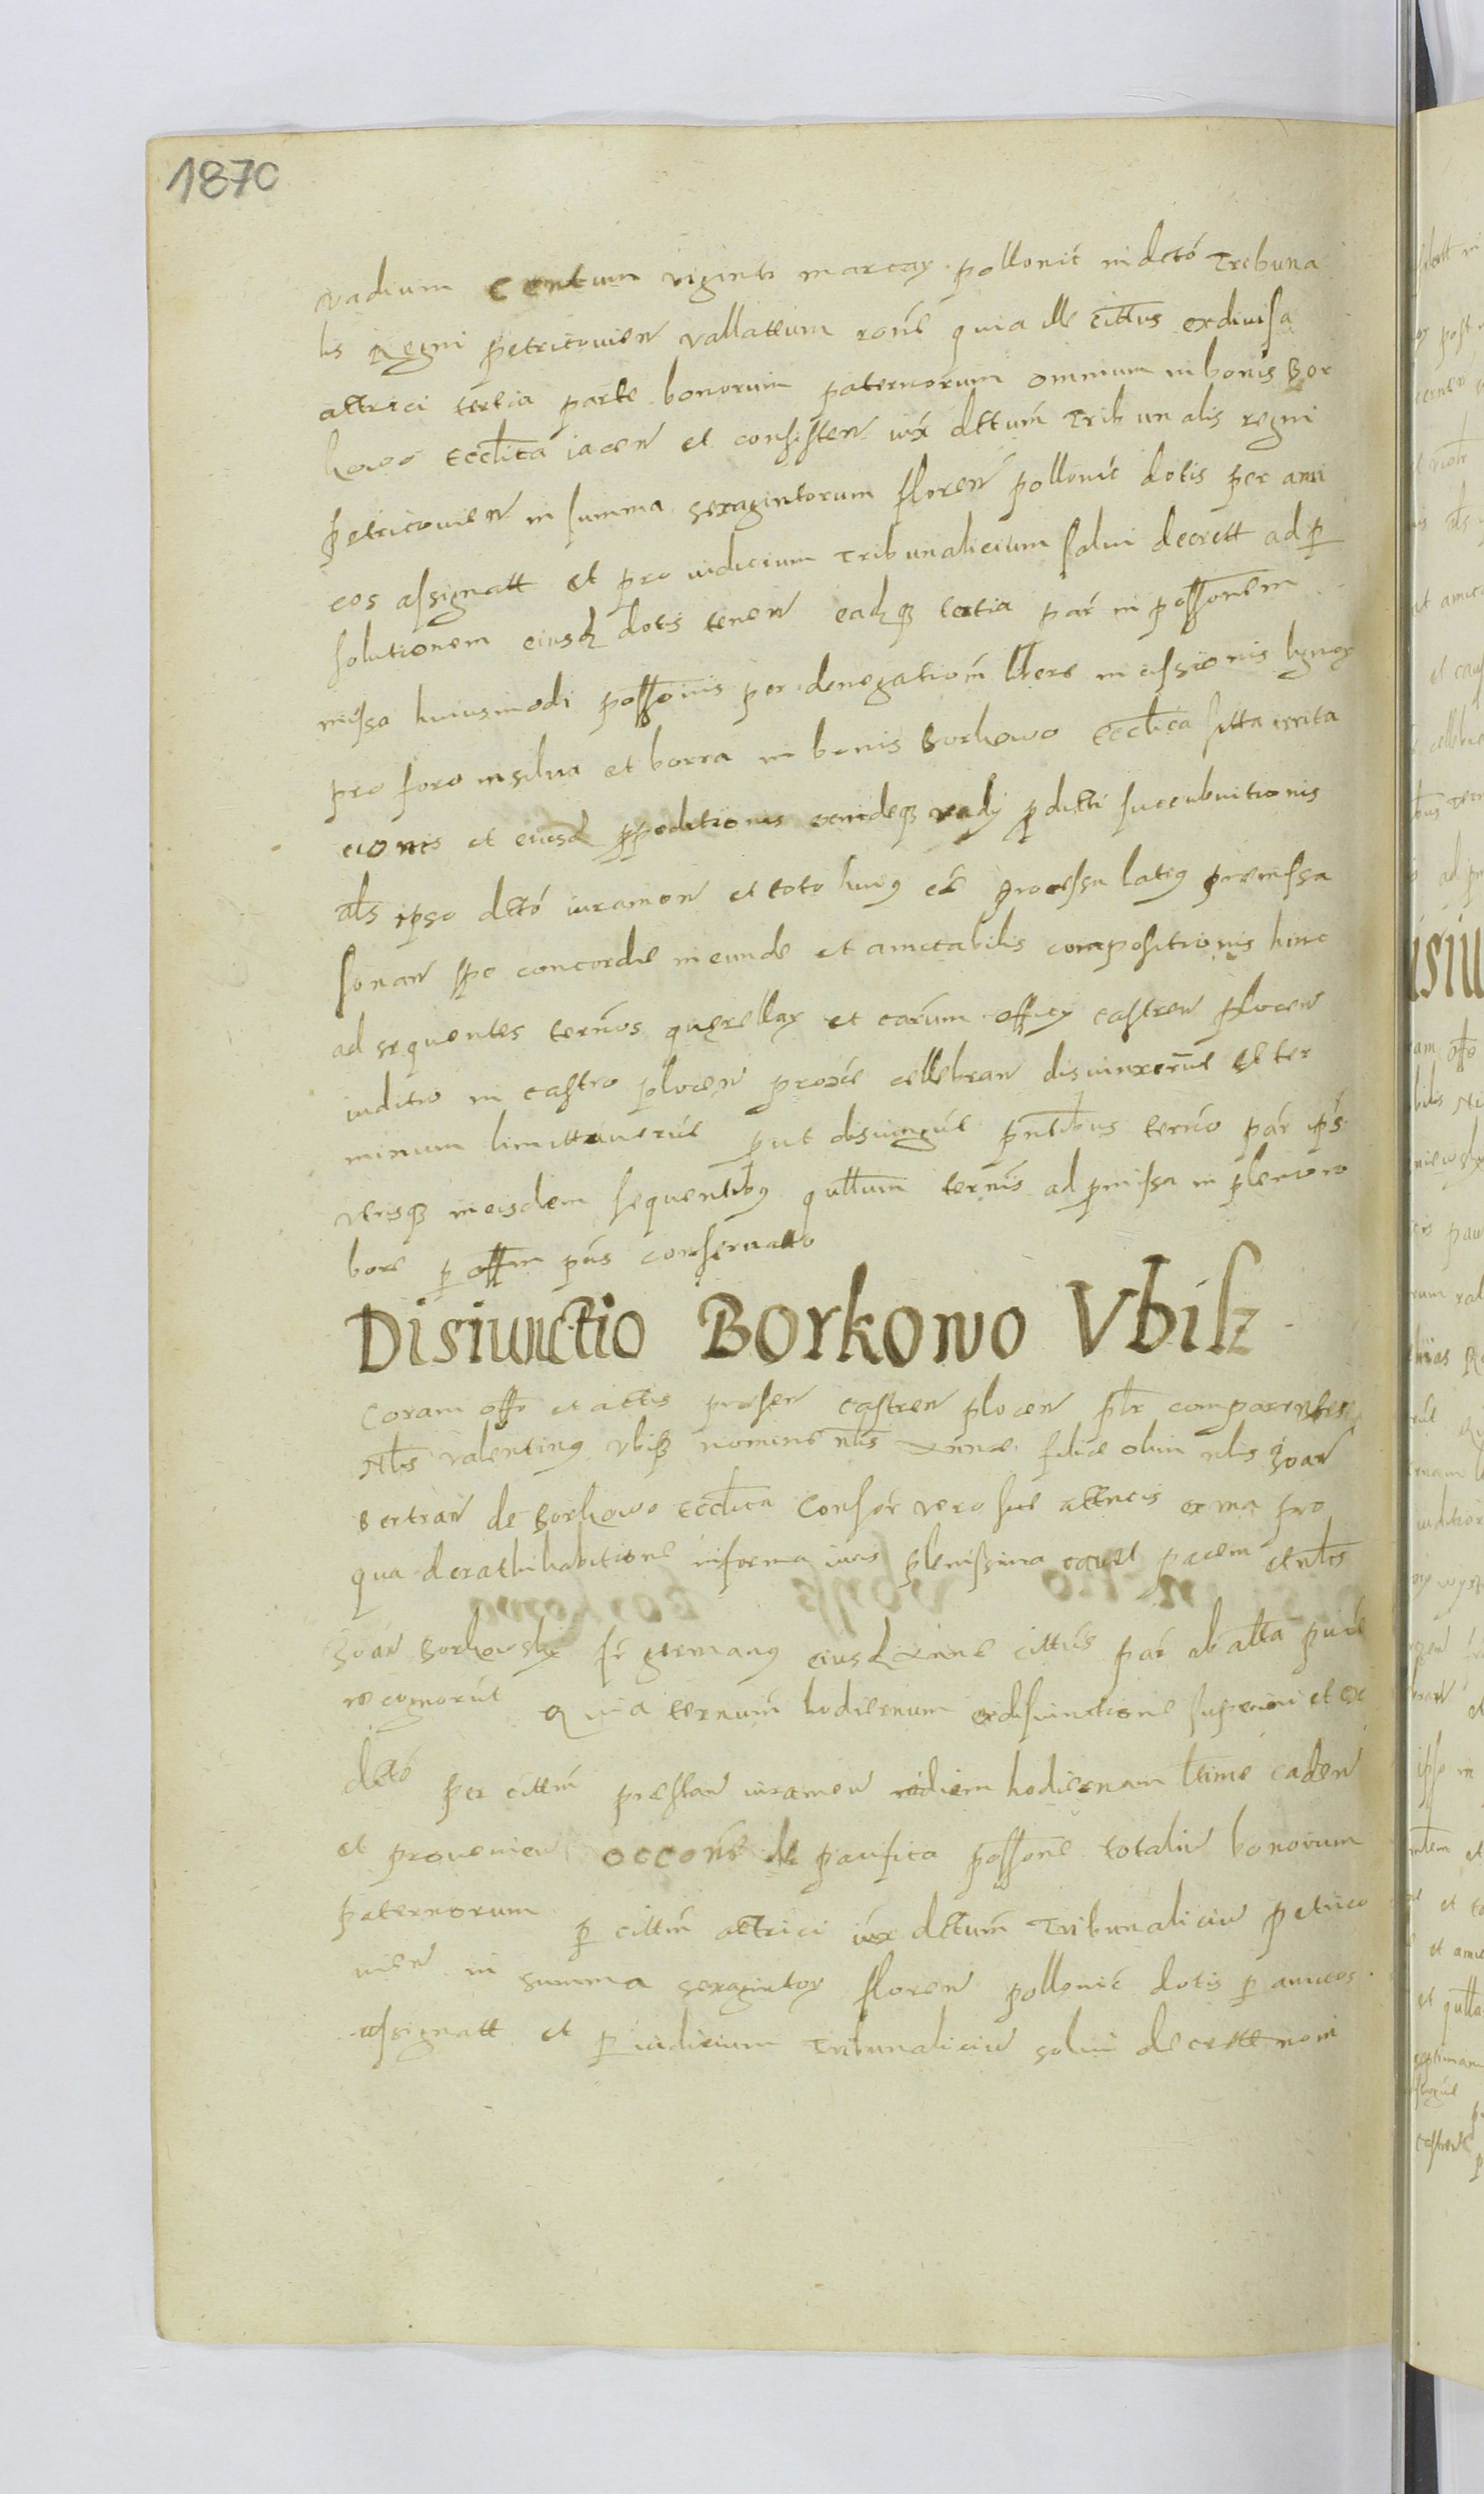 1870
vadium centum viginti marcaꝝ pollonic̄ in dctō Tribuna
lis Regni petricovien̄ vallattum rōne quia ille citt̄us ex divisa
attrici tertia parte bonorum paternorum omnium in bonis Bor
kowo Eccl̄ica iacen̄ et consisten̄ iux̄ dctum̄ Tribunalis regni
petricovien̄ in summa sexagintorum floren̄ pollonic̄ dotis per ami
cos assignatt et pro iudicium Tribunalicium solui decrett ad ꝑ
solutionem eiusd̄ dotis tenen̄ eadqꝫ tertia par̄ in poss̄onem
missa huiusmodi poss̄onis per denegatiōm libere incissionis lignoꝝ
pro foro in silva et borra in bonis Borkowo Eccl̄ica sitta
cionis et eiusd̄ expeditionis exindeqꝫ vadÿ ꝑditti succubuitionis
al̄s ipso dctō iuramen̄ et toto huiꝰ cāe processu latiꝰ premissa
sonan̄ spe concordie ineunde et amicabilis compositionis hinc
ad sequentes termōs querellaꝝ et carum officÿ castren̄ plocen̄
iuditio in castro plocen̄ proxīe cellebran̄ disiunxerūt et ter
minum limittaverūt put disiungūt pn̄tibus termō par̄ ips̄
utrisqꝫ in eisdem sequentibꝰ quell̄um termīs ad p̄missa in pleniore ro
bore ꝑ offm̄ pn̄s conservatto
Disiunctio Borkowo Vbisz
Coram offō et actis presen̄ castren̄ plocen̄ pl̄r comparentes
Nbl̄s valentinꝰ Vbisz nomine nbl̄is Annæ filiæ olim nbl̄is Joan̄
Bertran̄ de Borkowo Eccl̄ica Consor̄ vero suæ attricis ex una pro
qua de rathihabitione in forma iuris plenissima cavet pacem et nbl̄is
Joan̄ Borkowsky fr̄ germanꝰ eiusd̄ Anne citt̄us par̄ ab altā purē
recognorūt Quia termin̄um hodiernum ex disiunctione superiori et ex
dctō per citt̄m prestan̄ iuramen̄ in diem hodiernam ltimē caden̄
et provenien̄ occōne de pacifica poss̄one totaliū bonorum
paternorum ꝑ citt̄m attrici iux̄ dctum̄ Tribunaliciū petrico
vien̄ in summa sexagintoꝝ floren̄ pollonic̄ dotis ꝑ amicos
assignatt et ꝑ iudicium Tribunaliciū solui decrett non